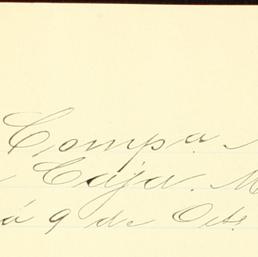 Compa.
Caja. M
á 9 de Oct.